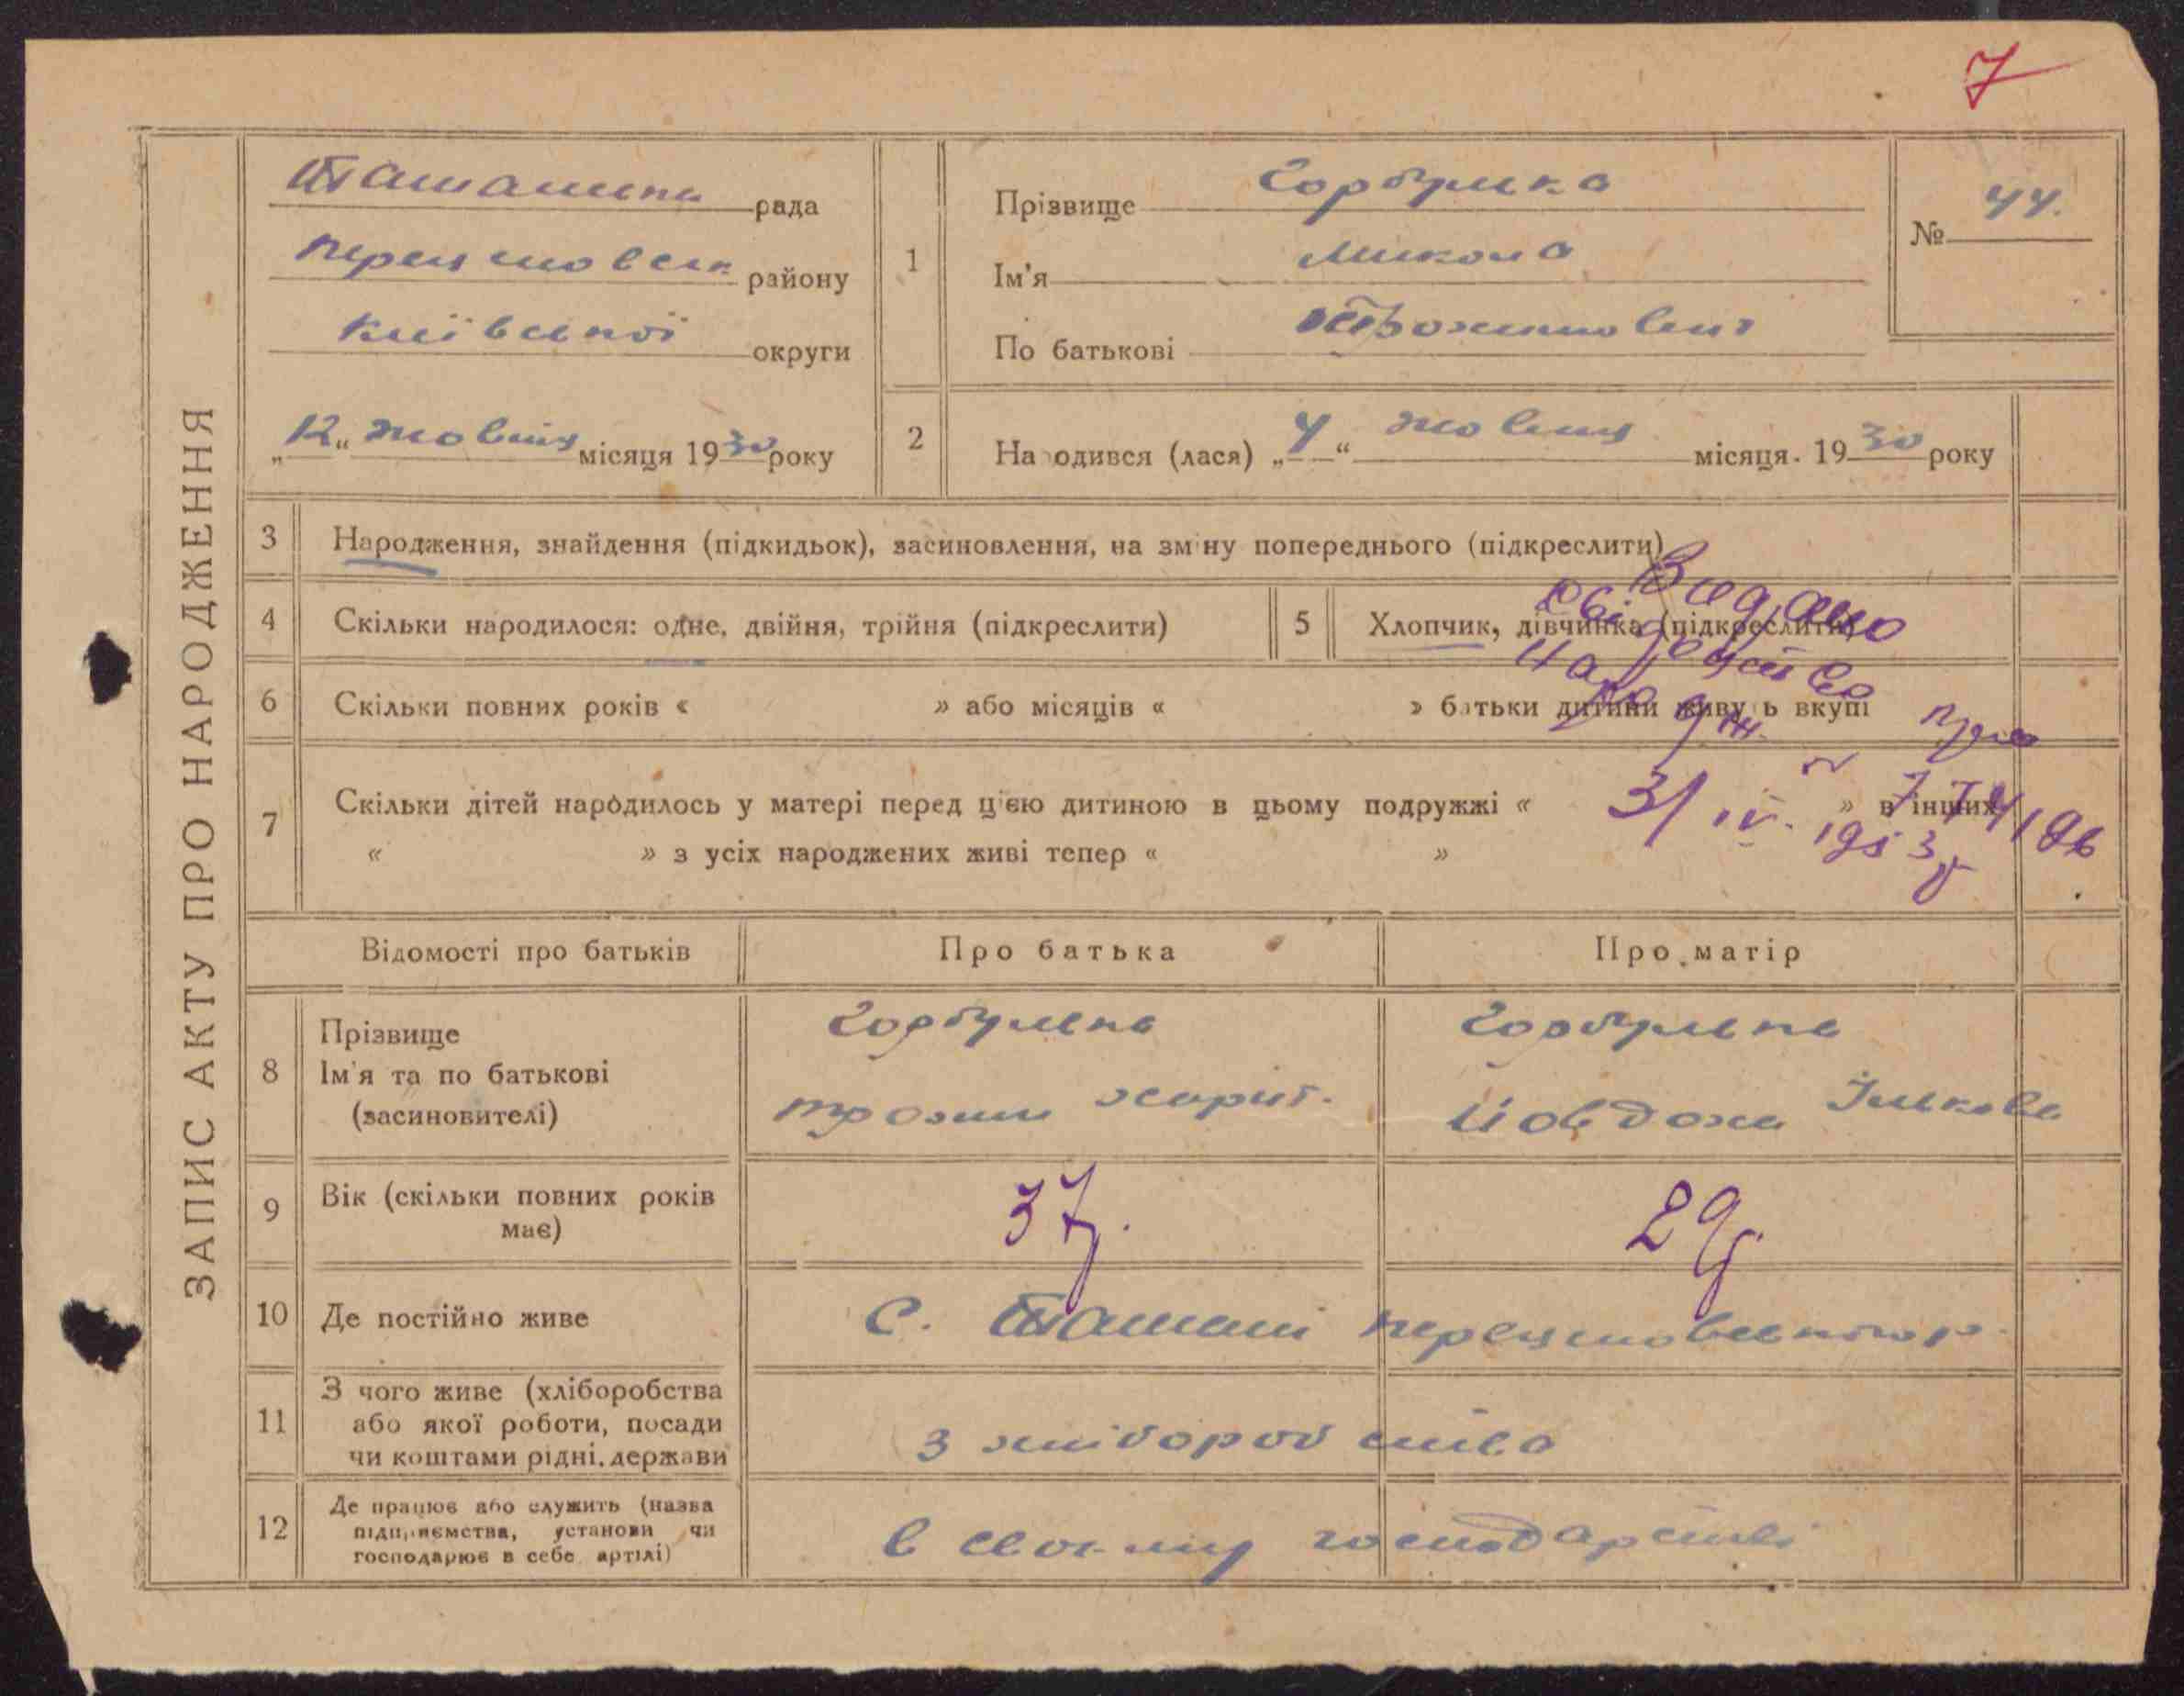 7
Ташанська рада
району
Київської округи
„12“ жовтня місяця 1930 року
1
Прізвище Горбулька
Ім'я Микола
По батькові Трохимович
№ 44.
2
На одився (лася) „4“ жовтня місяця. 1930 року
ЗАПИС АКТУ ПРО НАРОДЖЕННЯ
3 Народження, знайдення (підкидьок), засиновлення, на зміну попереднього (підкреслити)
4 Скільки народилося: одне, двійня, трійня (підкреслити)
5 Хлопчик, дівчинка (підкреслити)
Видано
свідоцтво
народж.
6 Скільки повних років « » або місяців « » батьки дитини живуть вкупі
7 Скільки дітей народилось у матері перед цією дитиною в цьому подружжі « » в інших
« » з усіх народжених живі тепер « »
31 IV. 1953 р
Відомості про батьків
Про батька
Про матір
8 Прізвище
Ім'я та по батькові
(засиновителі)
Горбулька
Трохим Харит.
Горбулька
Йовдоха
9 Вік (скільки повних років
має)
37.
29.
10 Де постійно живе
с. Ташані
11 З чого живе (хліборобства
або якої роботи, посади
чи коштами рідні, держави
з хліборобства
12 Де працює або служить (назва
підприємства, установи чи
господарює в себе артілі)
в своєму господарстві